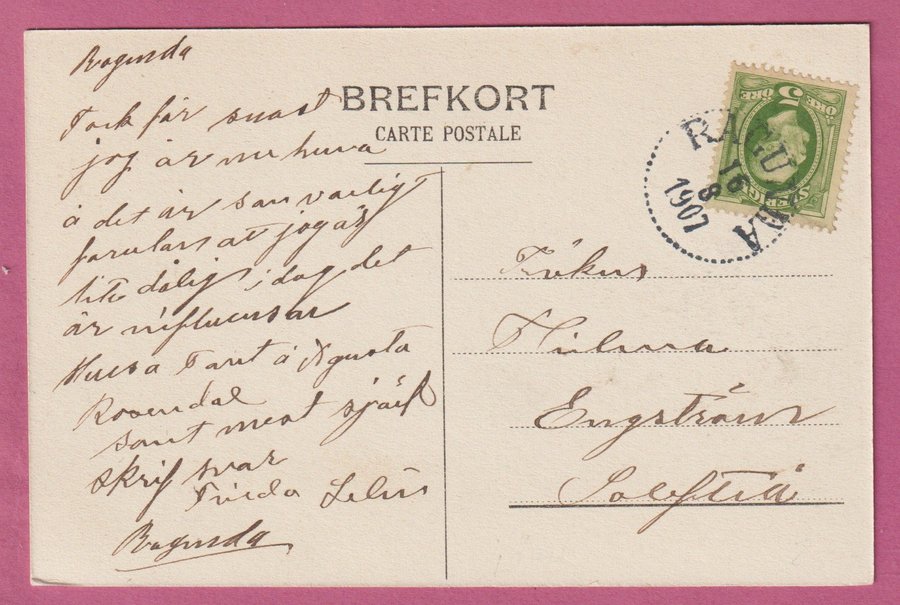 Ragunda
Tack får svaret
jag är nu huva
å det är san varligt
forulars at jag är
lite dålig i dag det
är influensar
Hälsa Tant å Agusta
Rosendal
samt mest själf
skrif svar
Frida Selin
Ragunda
BREFKORT
CARTE POSTALE
5 ÖRE ÖRE
SVERIGE
RAGUNDA
16
8
1907
Fröken
Hilma
Engström
Solefteå